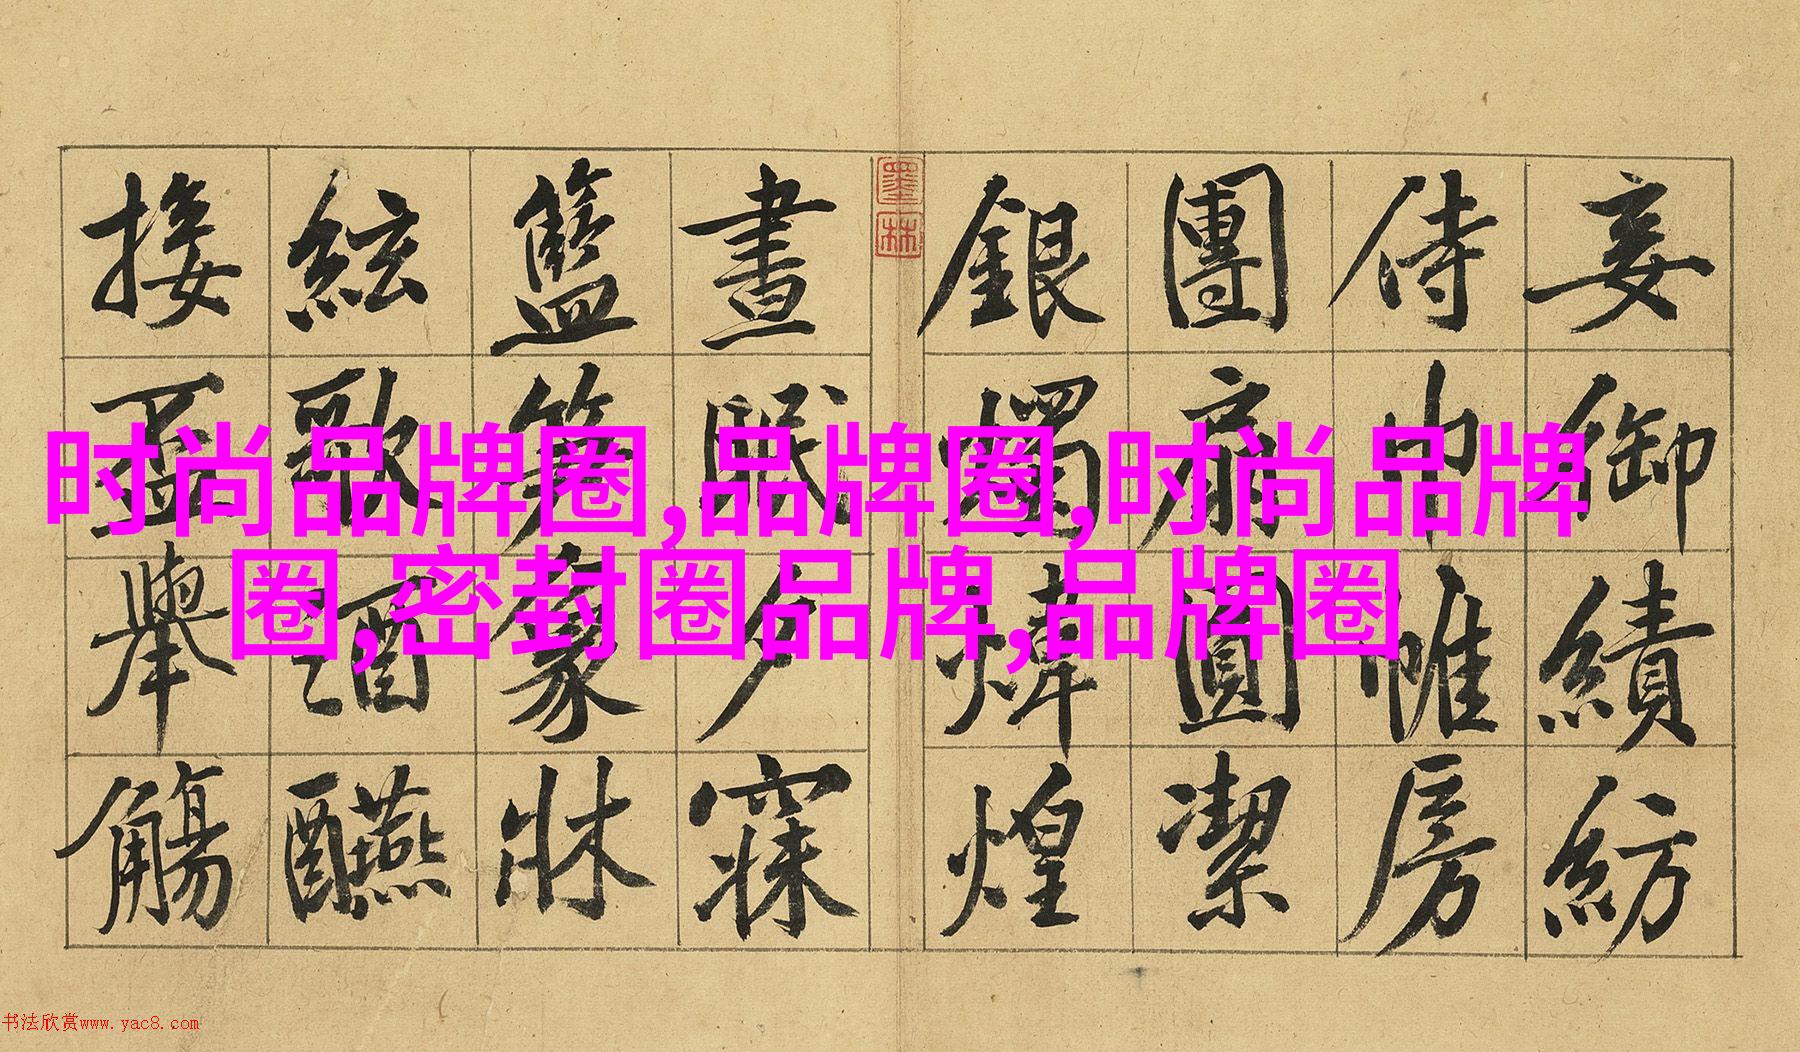 妾御績紡
侍巾帷房
團扇圓潔
銀燭煒煌
墨林
晝眠夕寐
籃笋象牀
絃歌酒醼
接盃舉觴
时尚品牌圈,品牌圈,时尚品牌
圈,密封圈品牌,品牌圈
书法欣赏www.yac8.com